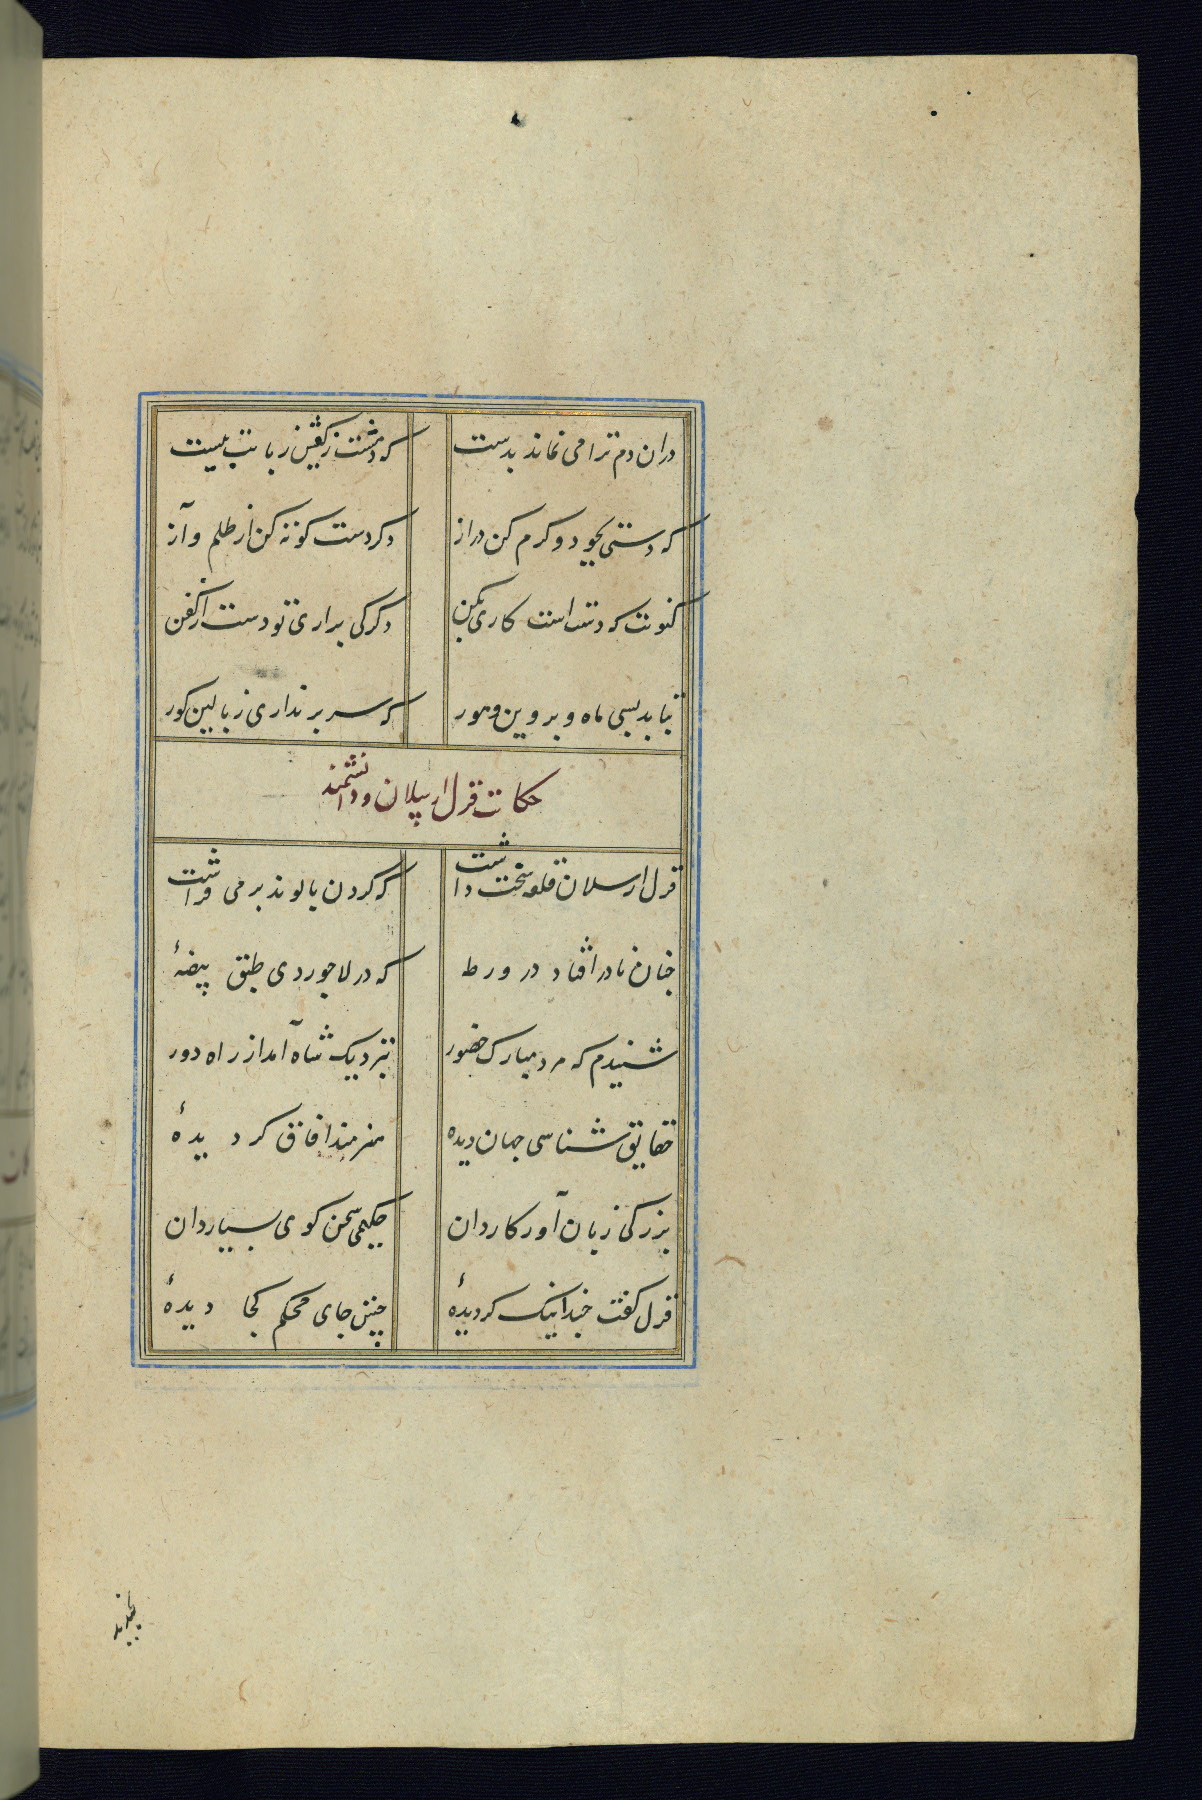 دران دم ترا می نماند بدست که دهشت زگفتن زبانت ببست
که دستی بجود و کرم کن دراز دکر دست کوته کن از ظلم و آز
کنونت که دست است کاری بکن دکر کی براری تو دست از کفن
بتابد بسی ماه و پروین و هور که سر بر نداری زبالین کور
حکایت قزل ارسلان و دانشمند
قزل ارسلان قلعه سخت داشت که کردن بالوند بر می فراشت
چنان نادر افتاد در روضه که در لاجوردی طبق بیضهٔ
شنیدم که مرد مبارک حضور بنزدیک شاه آمد از راه دور
حقایق شناسی جهان دیده هنرمند افاق کردیدهٔ
بزرکی زبان آور کاردان حکیمی سخن کوی بسیاردان
قزل کفت چندانک کردیدهٔ چنین جای محکم کجا دیدهٔ
بخندید